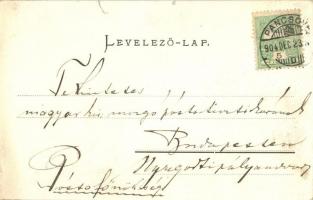 LEVELEZŐ-LAP.
PANCSOVA
904 DEC 23
5
Tekintetes
magyar kir. mozgó posta
Budapesten
Nyugoti pályaudvar
Postafőnökség